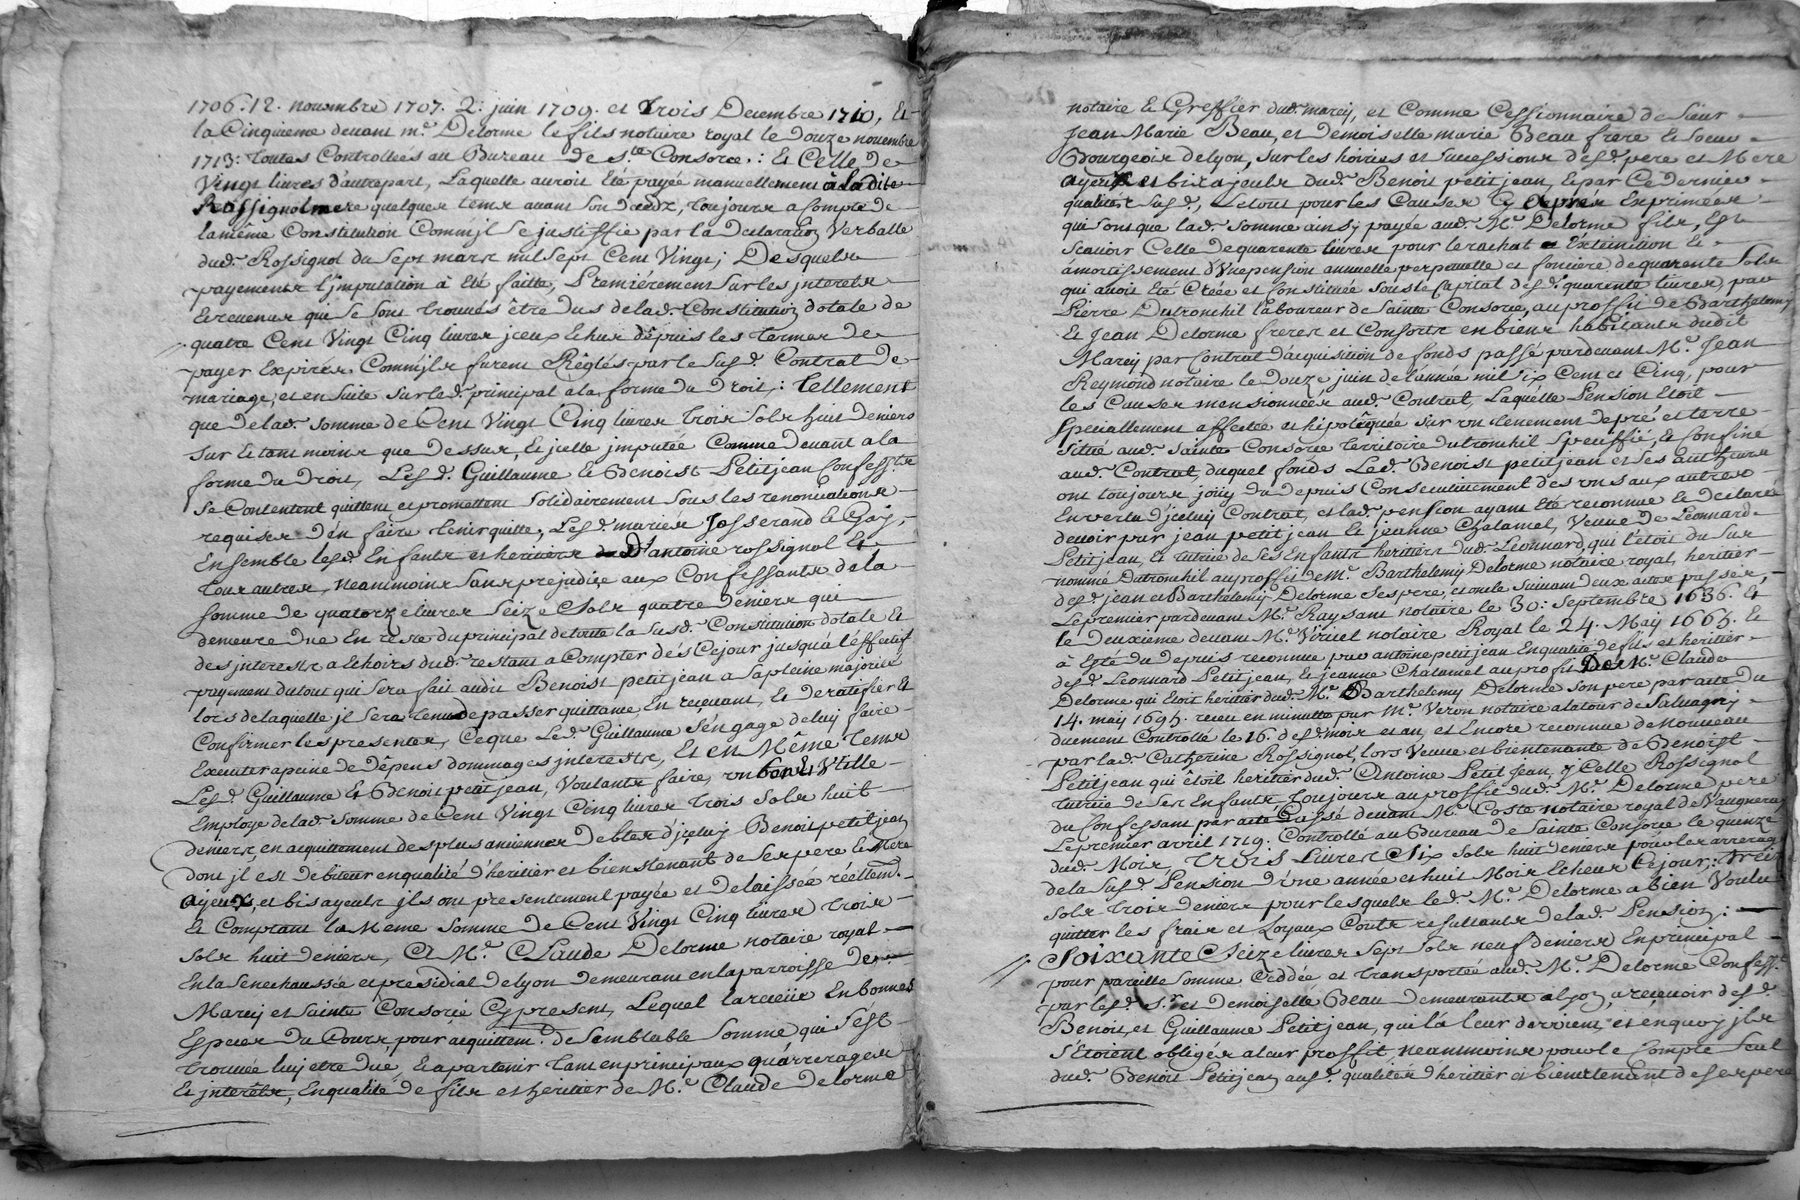 1706. 12. nouembre 1707. 2. juin 1709. et trois Decembre 1710, Et
la Cinquieme deuant m.e Delorme le fils notaire royal le douze nouembre
1713: toutes Controlleés au Bureau de S.te Consorce.: Et Celle de
Vingt liures d'autrepart, Laquelle auroit Eté payée manuellement à la dite
Rossignol mere quelques tems auant son deceds, toujours a Compte de
la même Constitution Comm'jl se justiffie par la declaration Verballe
dud. Rossignol du sept mars mil sept Cent Vingt; Desquels
payements l'jmputation à Eté faitte, Premiérement sur les jnterets
Et reuenus qui se sont trouués être dus de lad. Constitution dotale de
quatre Cent Vingt Cinq liures jceux Echus dépuis les termes de
payer Expirés Comm'jls furent Réglés par le susd. Contrat de
mariage, et en suite sur led. principal a la forme du droit; tellement
que de lad. somme de Cent Vingt Cinq liures trois sols huit deniers
sur Et tant moins que dessus, Et jcelle jmputée Comme deuant a la
forme du droit, Lesd. Guillaume Et Benoist Petitjean Confess.ts
se Contentent quittent et promettent solidairement sous les renonciations
requises d'en faire tenir quitte, Lesd. mariés Josserand Et Gay,
Ensemble lesd. Enfants et heritiers dud.t antoine rossignol Et
tous autres, neantmoins sans prejudice aux Confessants de la
somme de quatorze liures seize sols quatre deniers qui
demeure due En reste du principal de toute la susd. Constitution dotale Et
des jnterestz a Echoirs dud. restant a Compter dés Cejour jusqu'a l'éffectif
payement du tout qui sera fait audit Benoist petitjean a sa pleine majorité
lors de laquelle jl sera tenu de passer quittance En reçeuant, Et de ratifier Et
Confirmer les presentes, Ceque Led. Guillaume s'engage de luy faire
Executer a peine de dêpens dommages jnterestz, Et en Même tems
Lesd. Guillaume Et Benoit petitjean, Voulants faire vn bon Et Vtille
Employe de lad. somme de Cent Vingt Cinq liures trois sols huit
deniers, en acquittement des plus anciennes debtes d'jceluy Benoit petitjean
dont jl est debiteur en qualité d'héritier et bientenant de ses pere Et Mere
ayeux, et bisayeuls jls ont presentement payée et delaissée réellem.t
Et Comptant la Meme somme de Cent Vingt Cinq liures trois
sols huit deniers, A M.e Claude Delorme notaire royal
En la Senechaussée et presidial de lyon demeurant en la parroisse de
Marcy et Sainte Consorce Cy present, Lequel la receüe En bonnes
Especes du Cours, pour acquittem.t de semblable somme qui s'est
trouuée luy etre duë, Et apartenir tant en principaux qu'arrerages
Et jnterêts, En qualité de fils et heritier de M.e Claude Delorme
notaire Et Greffier dud. marcy, et Comme Cessionnaire de sieur
Jean Marie Beau, et demoiselle marie Beau frere Et soeur
Bourgeois de lyon, sur les hoiries et successions desd. pere et Mere
ayeux et bisajeuls dud. Benoit petitjean, Et par Ce dernier
qualités susd, et tout pour les Causes Cy apres Exprimées
qui sont que lad. somme ainsy payée aud. M.e Delorme fils, Est
scauoir Celle de quarente liures pour le rachat Extinction Et
amortissement d'Vne pension annuelle perpetuelle et fonciere de quarente sols
qui auoit Eté Créée et Constituée sous le Capital desd. quarente liures par
Pierre Dutronchil laboureur de Sainte Consorce, au proffit de Barthelemy
Et Jean Delorme freres et Consorts en biens habitants dudit
Marcy par Contrat d'acquisition de fonds passé pardeuant M.e Jean
Reymond notaire le douze juin de l'année mil six Cent et Cinq, pour
les Causes mensionneés aud. Contrat, Laquelle Pension Etoit
specialement affectée et hipotéquée sur vn tenement de pré et terre
situé aud. Sainte Consorce territoire dutronchil speciffié, Et Confiné
aud. Contrat, duquel fonds Led. Benoist petitjean et ses autheurs
ont toujours joüy du depuis Consecutiuement des vns aux autres
En vertu d'jceluy Contrat, et lad. pension ayant Eté reconnue Et declarée
deuoir par jean petitjean Et jeanne Chalamel, Veuue de Leonnard
Petitjean, Et tutrice de ses Enfants heritiers dud. Leonnard, qui l'étoit du sur
nommé Dutronchil au proffit de M.e Barthelemy Delorme notaire royal heritier
desd. jean et Barthelemy Delorme ses pere, et oncle suiuant deux actes passés,
Le premier pardeuant M.e Raysant notaire le 30. Septembre 1636. Et
le deuxieme deuant M.e Viricel notaire Royal le 24. May 1665. Et
à Esté du depuis reconnue par antoine petitjean En qualité de fils et heritier
desd. Leonnard Petitjean, Et jeanne Chalamel au profit De M.e Claude
Delorme qui Etoit heritier dud. M.e Barthelemy Delorme son pere par acte du
14. may 1695. receu en minutte par M.e Veron notaire a la tour de Saluagny
duement Controllé le 16. desd. mois et an, et Encore reconnue de nouueau
par lad. Catherine Rossignol, lors Veuue et bientenante de Benoist
Petitjean qui êtoit heritier dud. Antoine Petit Jean, y Celle Rossignol
tutrice de ses Enfants toujours au proffit dud. M.e Delorme pere
du Confessant par acte passé deuant M.e Coste notaire royal de Vaugneray
Le premier avril 1719. Controllé au Bureau de Sainte Consorce le quinze
dud. Mois, Trois Liures Six sols huit deniers pour les arrerages
de la susd. Pension d'vne année et huit Mois Echeus Cejour; treize
sols trois deniers pour lesquels led. M.e Delorme a bien Voulu
quitter les frais et Loyaux Couts resultants de lad. Pension;
Soixante Seize liures sept sols neuf deniers En principal
pour pareille somme Cédée et transportée aud. M.e Delorme Confess.t
par lesd. S.r et Demoiselle Beau demeurants a lyon a receuoir desd.
Benoit et Guillaume Petitjean, qui la leur deuoient et en quoy jls
s'Etoient obligés a leur proffit neantmoins pour le Compte seul
dud. Benoit Petitjean ausd. qualités d'heritier et bientenant de ses pere